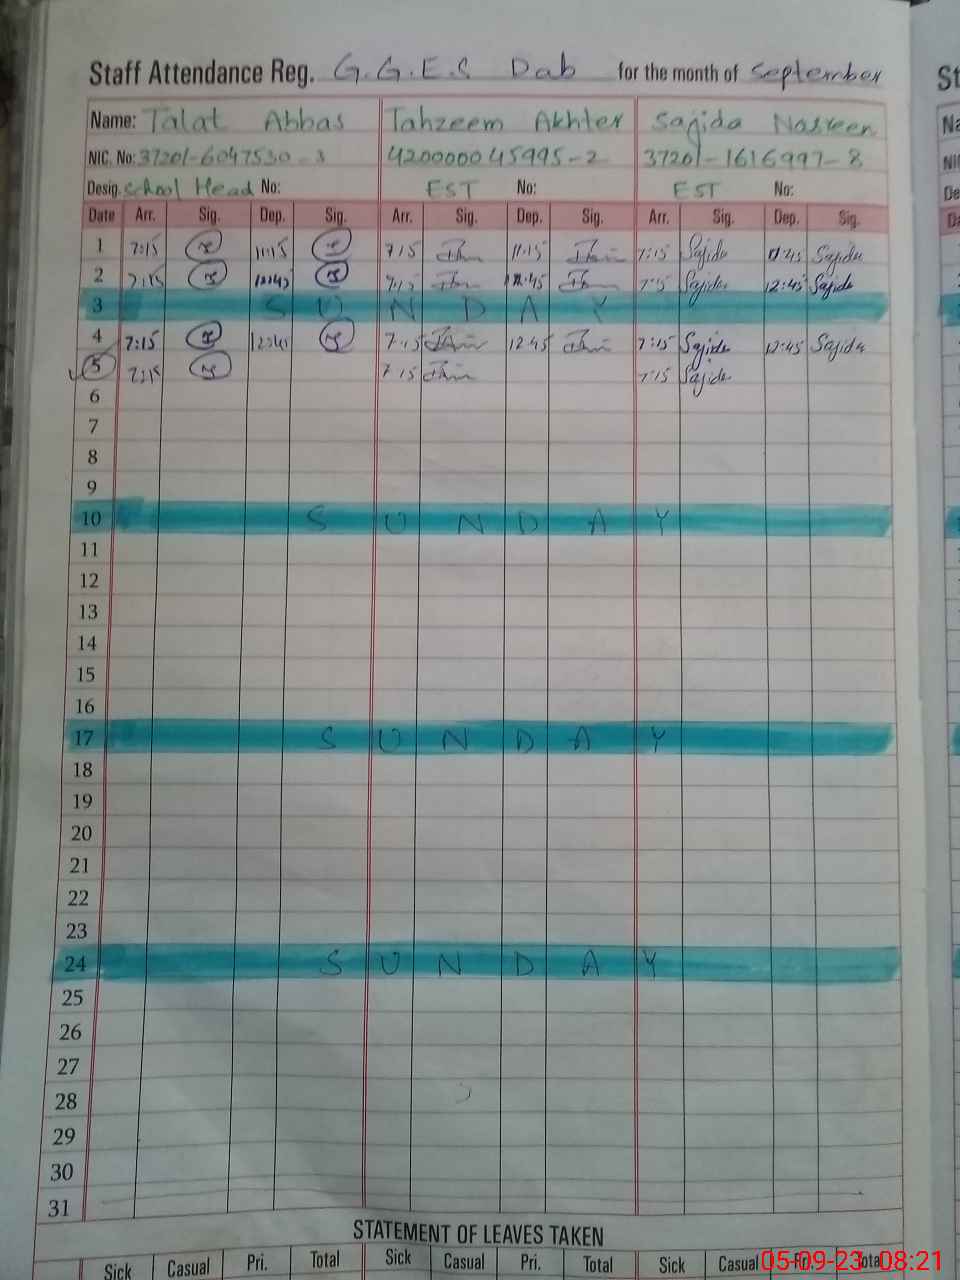 Staff Attendance Reg. G.G.E.S Dab for the month of September
Name: Talat Abbas Tahzeem Akhter Sajida Nasreen
NIC. No: 37201-6047530-3 42000045995-2 37201-1616997-8
Desig. School Head No: EST No: EST No:
Date Arr. Sig. Dep. Sig. Arr. Sig. Dep. Sig. Arr. Sig. Dep. Sig.
1 7:15 11:15 7:15 11:15 7:15 Sajida Sajida
2 7:15 12:45 7:15 12:45 7:15 Sajida 12:45 Sajida
3 SUNDAY
4 7:15 7:15 12:45 7:15 Sajida 12:45 Sajida
5 7:15 7:15 7:15 Sajida
6
7
8
9
10 SUNDAY
11
12
13
14
15
16
17 SUNDAY
18
19
20
21
22
23
24 SUNDAY
25
26
27
28
29
30
31
STATEMENT OF LEAVES TAKEN
Sick Casual Pri. Total Sick Casual Pri. Total Sick Casual Pri. Total
05-09-23 08:21